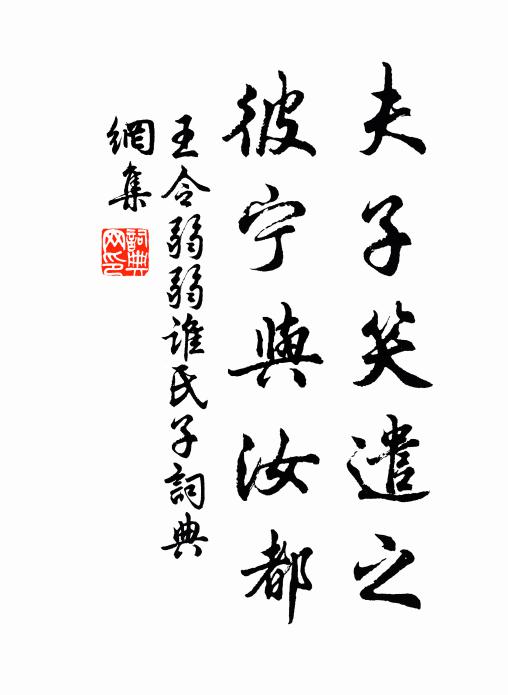 夫子笑遣之
彼宁與汝都
王令弱弱谁氏子詞典
網集
詞典網印